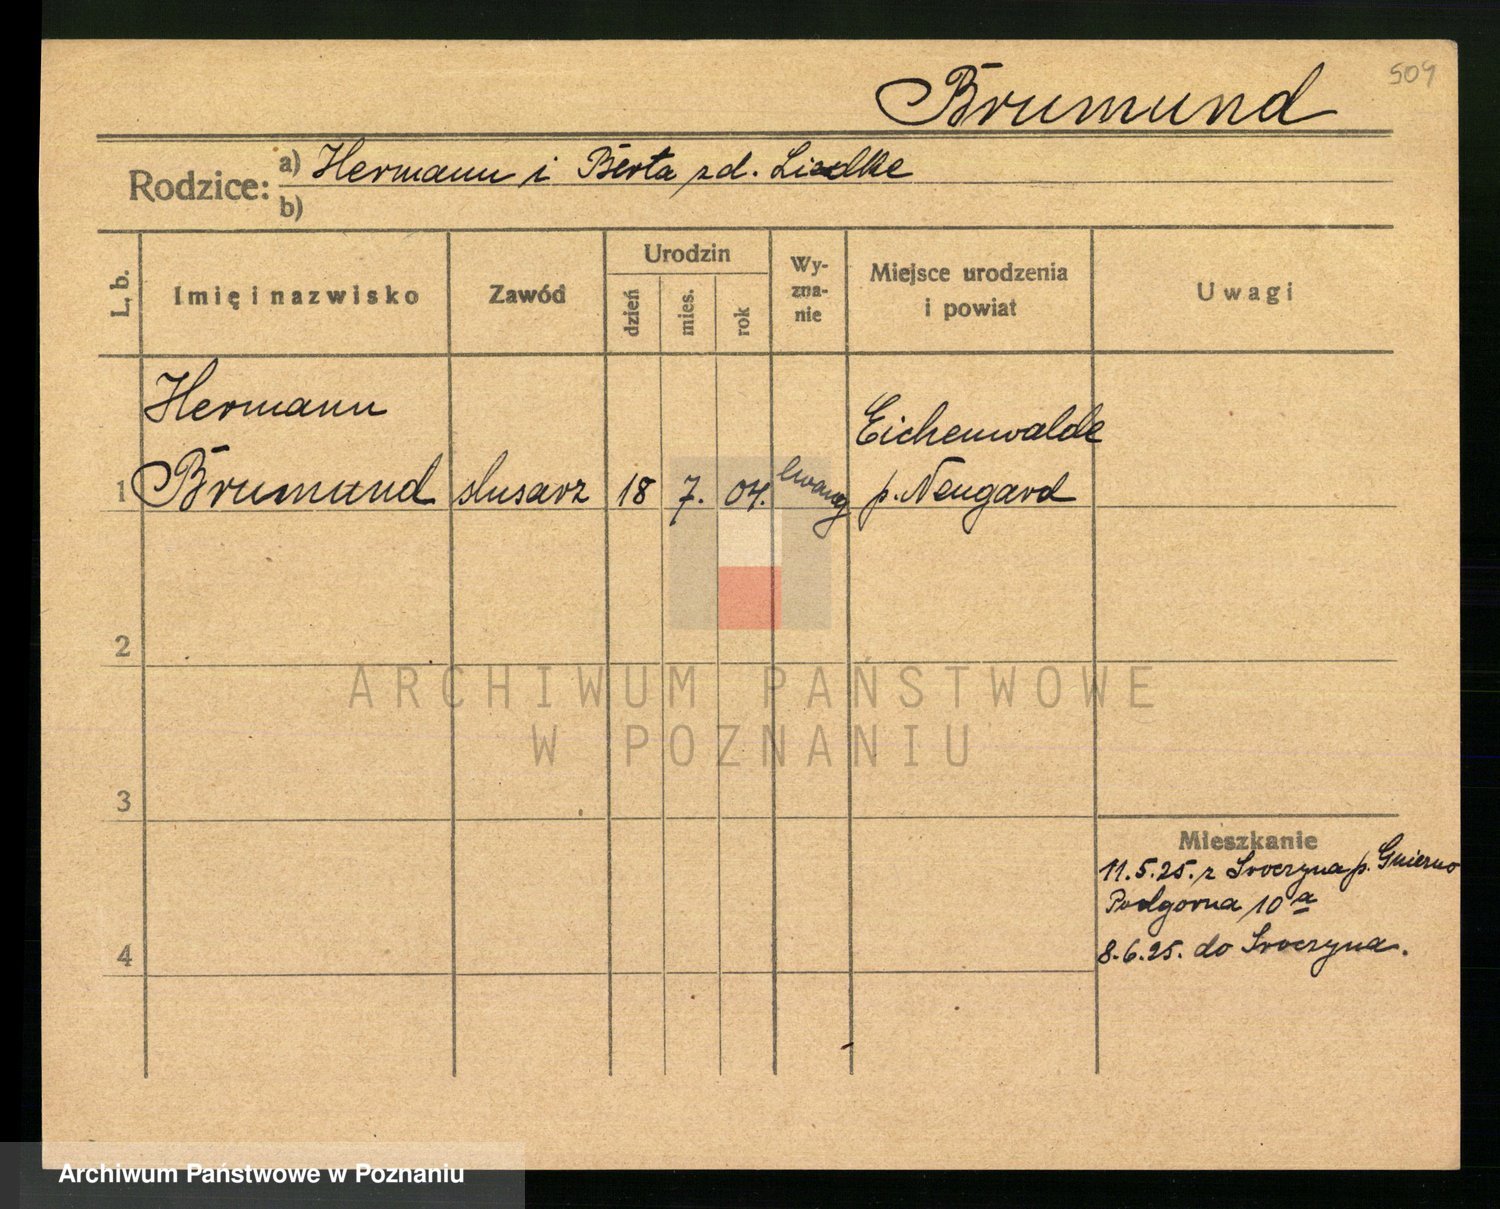 504
Brumund
Rodzice: a) Hermann i Berta zd. Liedke
b)
L. b.
Imię i nazwisko
Zawód
Urodzin
dzień
mies.
rok
Wy-
zna-
nie
Miejsce urodzenia
i powiat
Uwagi
Hermann
1 Brumund slusarz 18 7. 04. ewang
Eichenwalde
p. Neugard
2
3
4
Mieszkanie
11.5.25. z p. Gniezno
Podgorna 10 a
8.6.25. do
ARCHIWUM PAŃSTWOWE
W POZNANIU
Archiwum Państwowe w Poznaniu